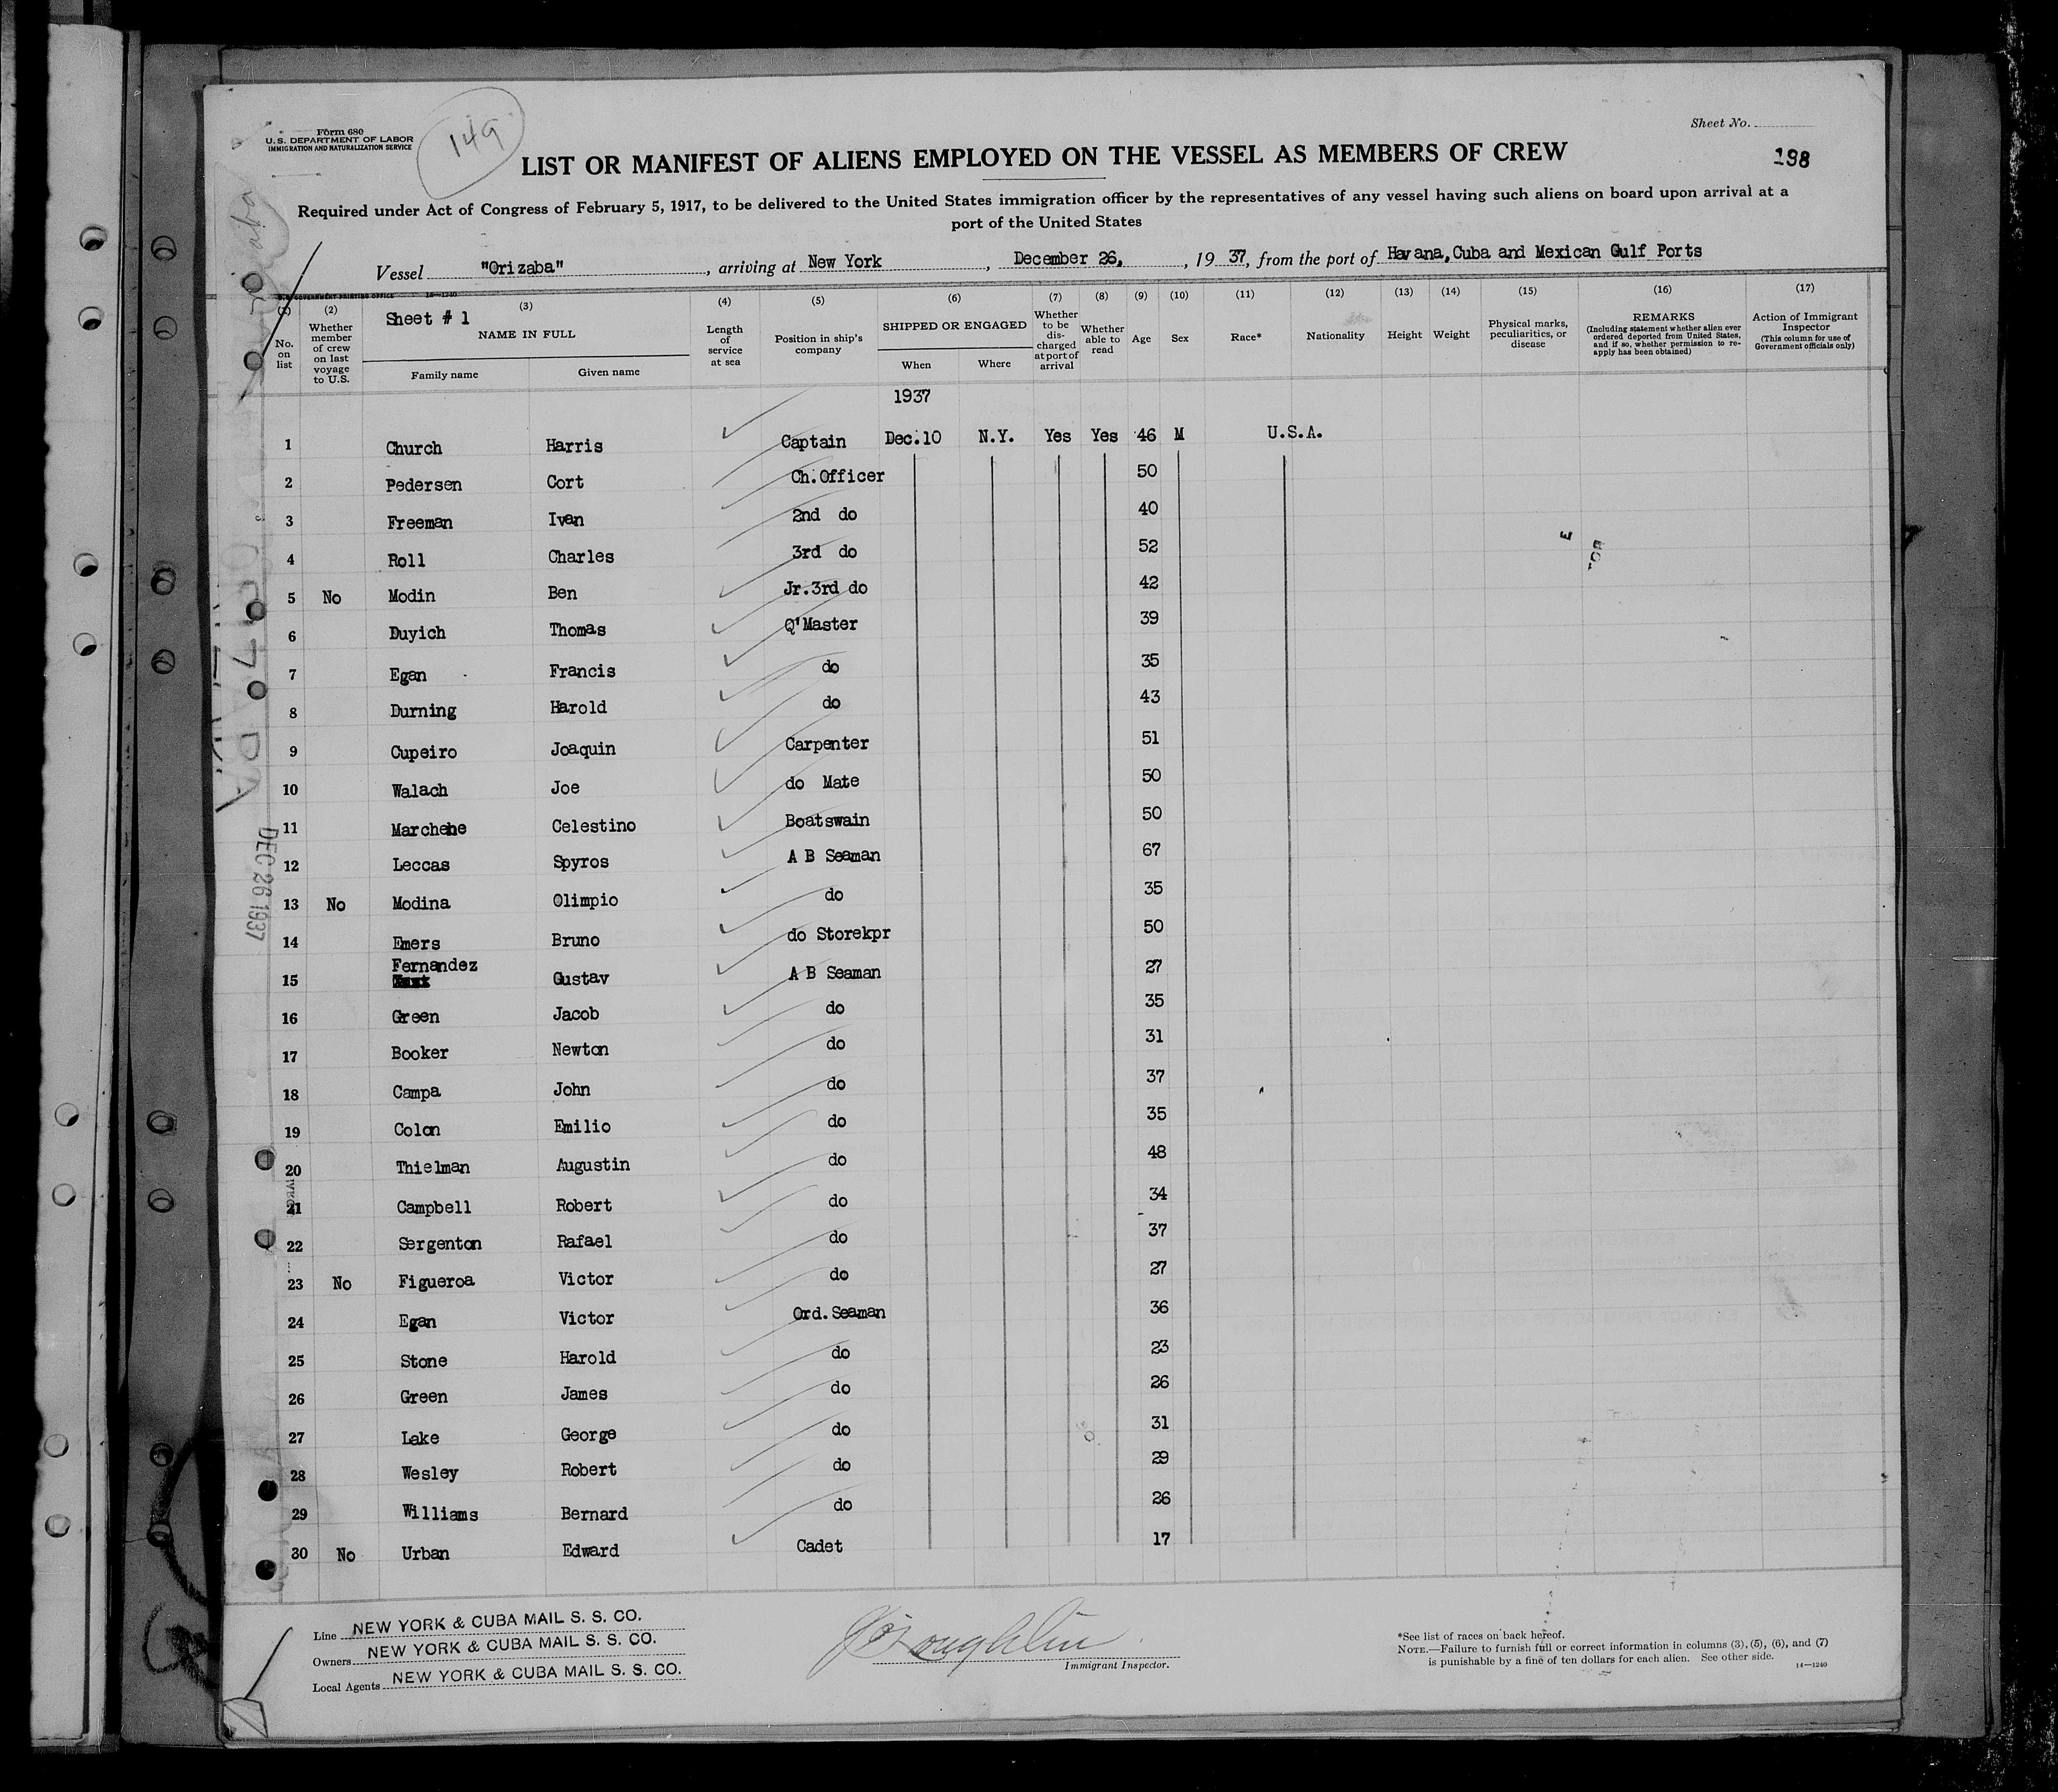 Form 680
U.S. DEPARTMENT OF LABOR
IMMIGRATION AND NATURALIZATION SERVICE
149
Sheet No.
198
LIST OR MANIFEST OF ALIENS EMPLOYED ON THE VESSEL AS MEMBERS OF CREW
Required under Act of Congress of February 5, 1917, to be delivered to the United States immigration officer by the representatives of any vessel having such aliens on board upon arrival at a
port of the United States
Vessel "Orizaba", arriving at New York, December 26, , 1937, from the port of Havana,Cuba and Mexican Gulf Ports
U.S. GOVERNMENT PRINTING OFFICE 14—1240
(1) No. on list
(2) Whether member of crew on last voyage to U.S.
Sheet # 1
(3) NAME IN FULL
Family name Given name
(4) Length of service at sea
(5) Position in ship's company
(6) SHIPPED OR ENGAGED
When Where
(7) Whether to be discharged at port of arrival
(8) Whether able to read
(9) Age
(10) Sex
(11) Race*
(12) Nationality
(13) Height
(14) Weight
(15) Physical marks, peculiarities, or disease
(16) REMARKS (Including statement whether alien ever ordered deported from United States, and if so, whether permission to reapply has been obtained)
(17) Action of Immigrant Inspector (This column for use of Government officials only)
1937
1 Church Harris Captain Dec.10 N.Y. Yes Yes 46 M U.S.A.
2 Pedersen Cort Ch.Officer 50
3 Freeman Ivan 2nd do 40
4 Roll Charles 3rd do 52
5 No Modin Ben Jr.3rd do 42
6 Duyich Thomas Q'Master 39
7 Egan Francis do 35
8 Durning Harold do 43
9 Cupeiro Joaquin Carpenter 51
10 Walach Joe do Mate 50
11 Marchene Celestino Boatswain 50
12 Leccas Spyros A B Seaman 67
13 No Modina Olimpio do 35
14 Emers Bruno do Storekpr 50
15 Fernandez Gustav A B Seaman 27
16 Green Jacob do 35
17 Booker Newton do 31
18 Campa John do 37
19 Colon Emilio do 35
20 Thielman Augustin do 48
21 Campbell Robert do 34
22 Sergenton Rafael do 37
23 No Figueroa Victor do 27
24 Egan Victor Ord.Seaman 36
25 Stone Harold do 23
26 Green James do 26
27 Lake George do 31
28 Wesley Robert do 29
29 Williams Bernard do 26
30 No Urban Edward Cadet 17
DEC 26 1937
Line NEW YORK & CUBA MAIL S. S. CO.
Owners NEW YORK & CUBA MAIL S. S. CO.
Local Agents NEW YORK & CUBA MAIL S. S. CO.
Immigrant Inspector.
*See list of races on back hereof.
NOTE.—Failure to furnish full or correct information in columns (3), (5), (6), and (7)
is punishable by a fine of ten dollars for each alien. See other side.
14—1240